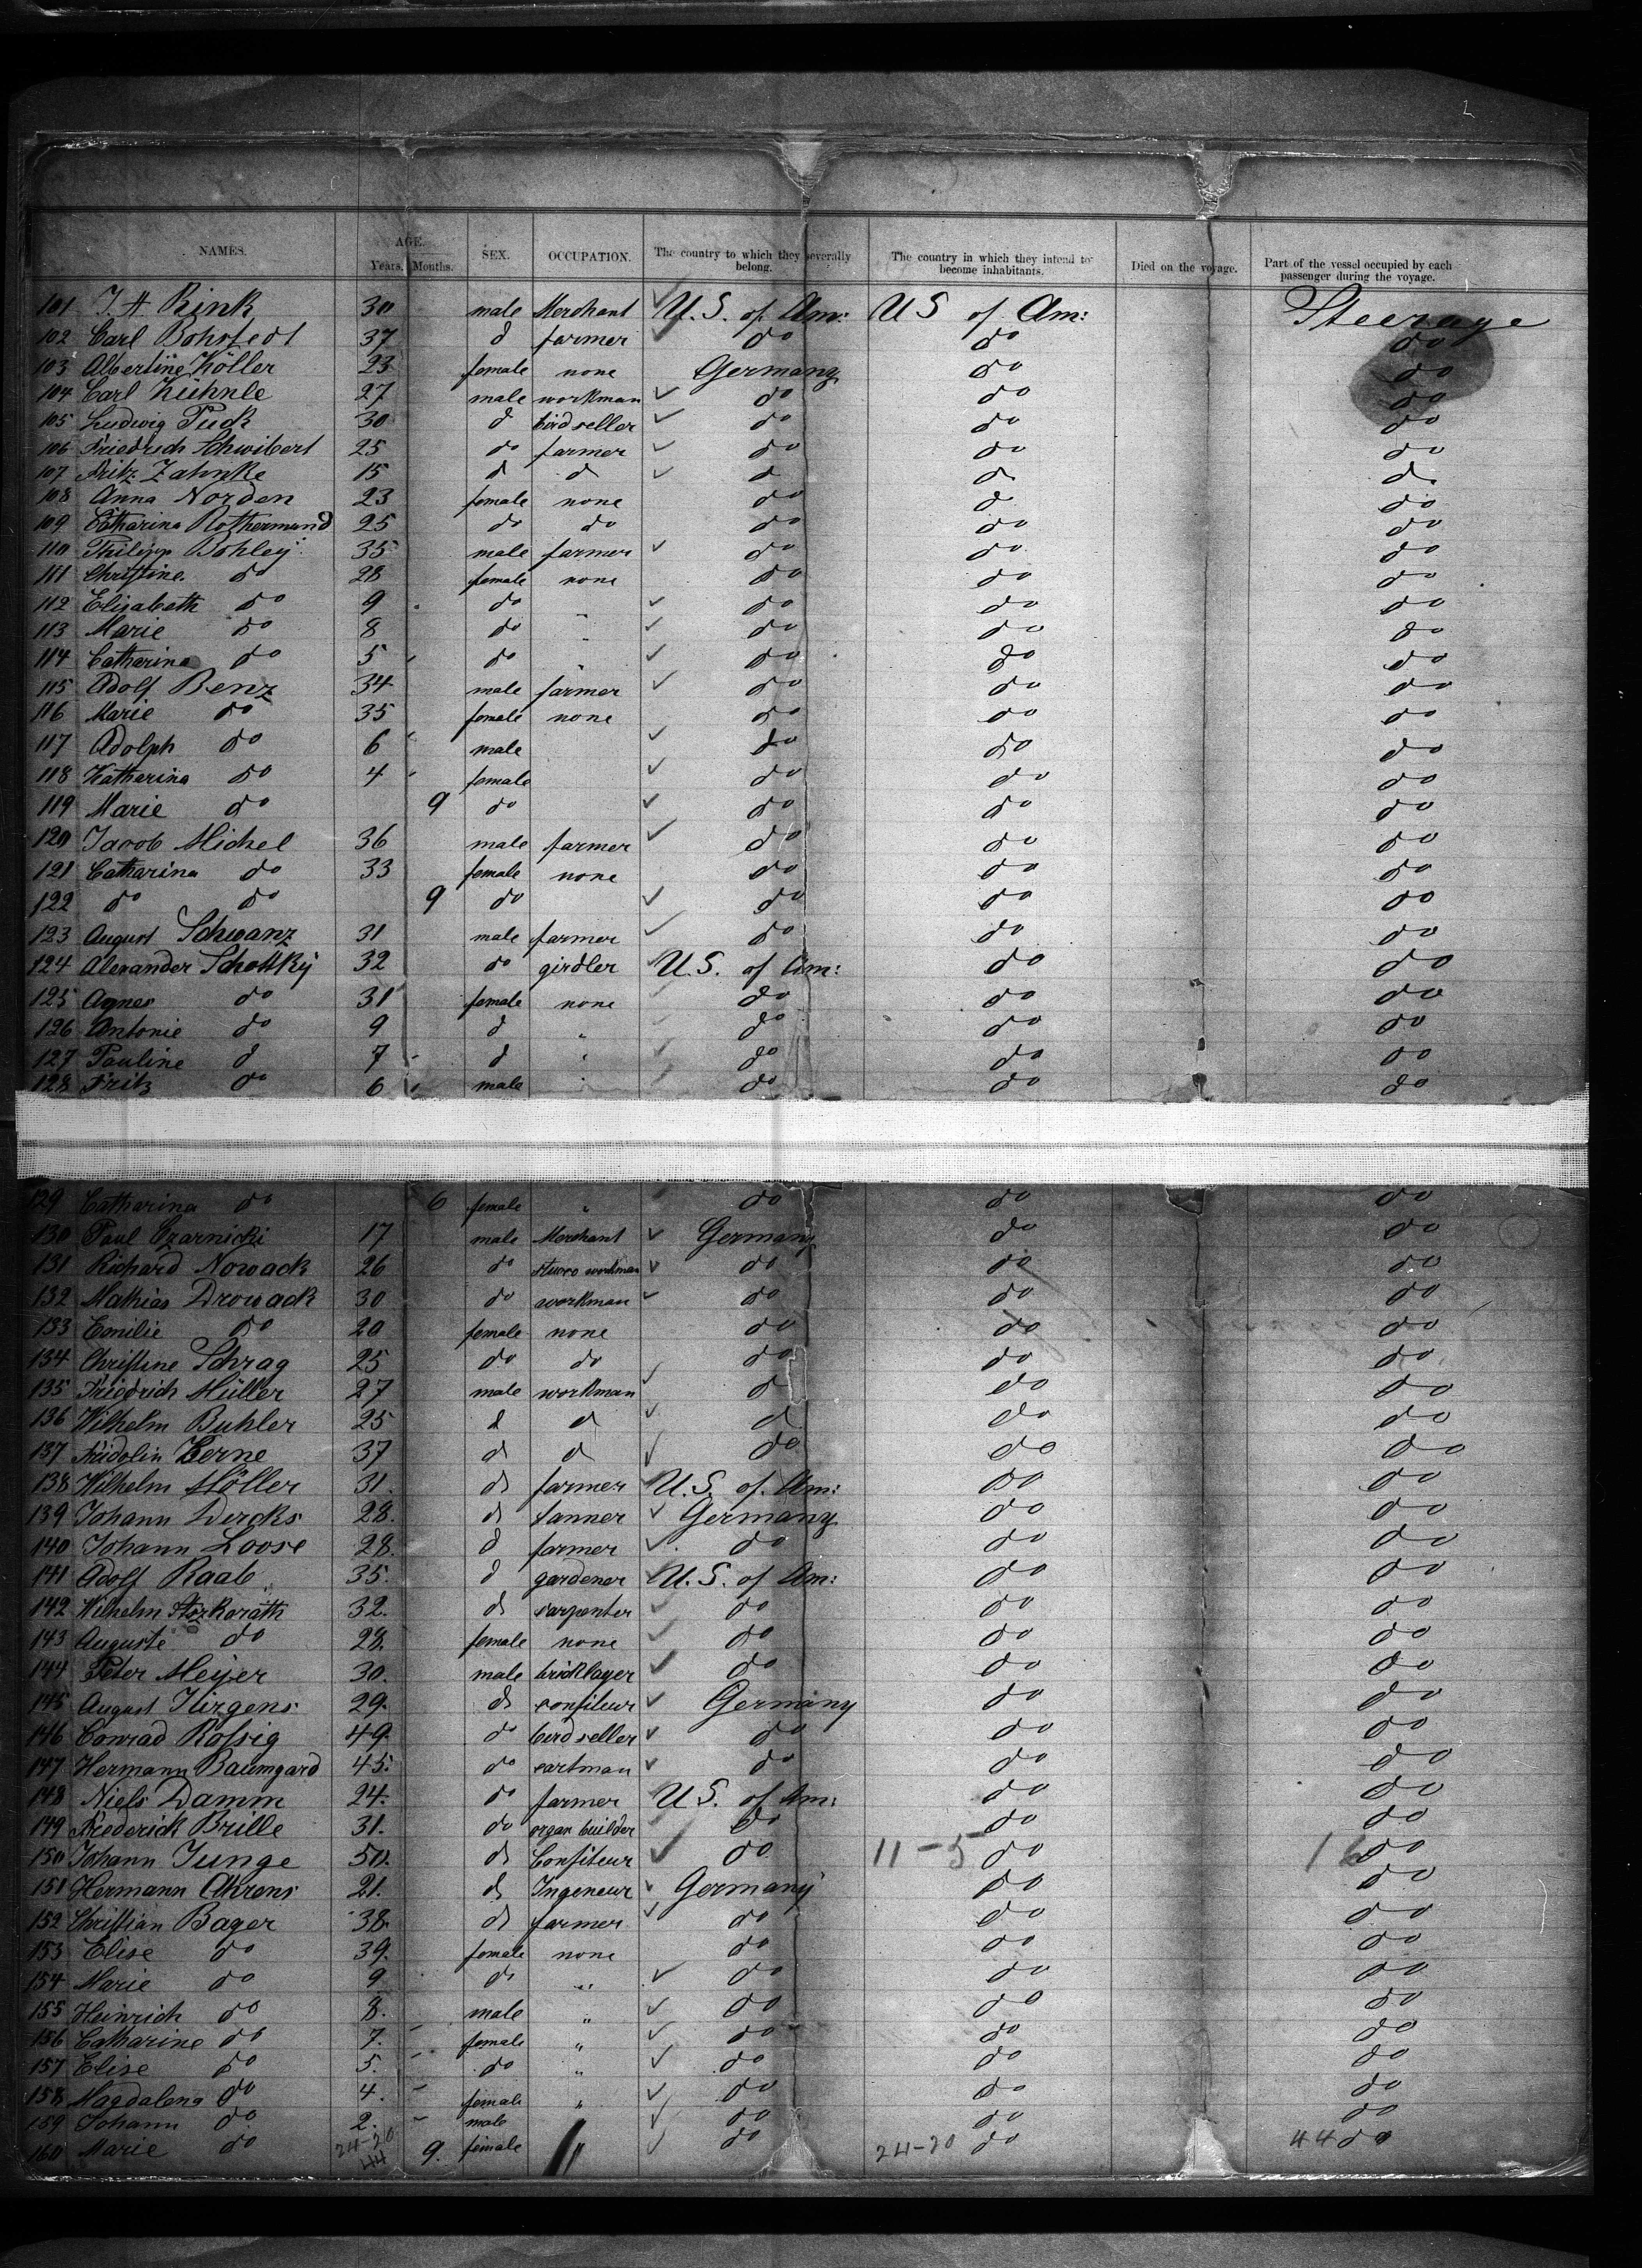 2
NAMES. AGE. Years. Months. SEX. OCCUPATION. The country to which they severally belong. The country in which they intend to become inhabitants. Died on the voyage. Part of the vessel occupied by each passenger during the voyage.
101 J. H Rink 30 male Merchant U.S. of Am: US of Am: Steerage
102 Carl Bohstedt 37 d farmer do do do
103 Albertine Köller 23 female none Germany do do
104 Carl Kühnle 27 male workman do do do
105 Ludwig Tuck 30 d bird seller do do do
106 Friedrich Schwibert 25 do farmer do do do
107 Fritz Zahnke 15 d d d d d.
108 Anna Norden 23 female none do d do
109 Catharina Rothermund 25 do do do do do
110 Philipp Bohley 35 male farmer do do do
111 Christine do 28 female none do do do
112 Elisabeth do 9 do do do do
113 Marie do 8 do " do do do
114 Catharina do 5 do " do do do
115 Adolf Benz 34 male farmer do do do
116 Marie do 35 female none do do do
117 Adolph do 6 male do do do
118 Katharina do 4 female do do do
119 Marie do 9 do do do do
120 Jacob Michel 36 male farmer do do do
121 Catharina do 33 female none do do do
122 do do 9 do do do do
123 August Schwanz 31 male farmer do do do
124 Alexander Schottky 32 do girdler U.S. of Am: do do
125 Agnes do 31 female none do do do
126 Antonie do 9 d " do do do
127 Pauline d 7 d " do do do
128 Fritz do 6 male " do do do
129 Catharina do 6 female " do do do
130 Paul Czarnicki 17 male Merchant Germany do do
131 Richard Nowack 26 do stucco workman do do do
132 Mathias Drowack 30 do workman do do do
133 Emilie do 20 female none do do do
134 Christine Schrag 25 do do do do do
135 Friedrich Müller 27 male workman d do do
136 Wilhelm Buhler 25 d d d do do
137 Fridolin Kerne 37 d d do do do
138 Wilhelm Möller 31. d farmer U.S. of Am: do do
139 Johann Dercks 28. d tanner Germany do do
140 Johann Loose 28. d farmer do do do
141 Adolf Raab 35. d gardener U.S. of Am: do do
142 Wilhelm Storkorath 32. d carpenter do do do
143 Auguste do 28. female none do do do
144 Peter Meyer 30. male bricklayer do do do
145 August Jürgens 29. d confiteur Germany do do
146 Conrad Rossig 49. do bird seller do do do
147 Hermann Baumgard 45. do cartman do do do
148 Niels Damm 24. do farmer U.S. of Am: do do
149 Frederick Brille 31. do organ builder do do do
150 Johann Junge 50. d Confiteur do 11-5 do 16 do
151 Hermann Ahrens 21. d Ingeneur Germany do do
152 Christian Bager 38. d farmer do do do
153 Elise do 39. female none do do do
154 Marie do 9 d " do do do
155 Heinrich do 8. male " do do do
156 Catharine do 7. female " do do do
157 Elise do 5. do " do do do
158 Magdalena do 4. female " do do do
159 Johann do 2. male do do do
160 Marie do 24-20 44 9. female " do 24-20 do 44 do